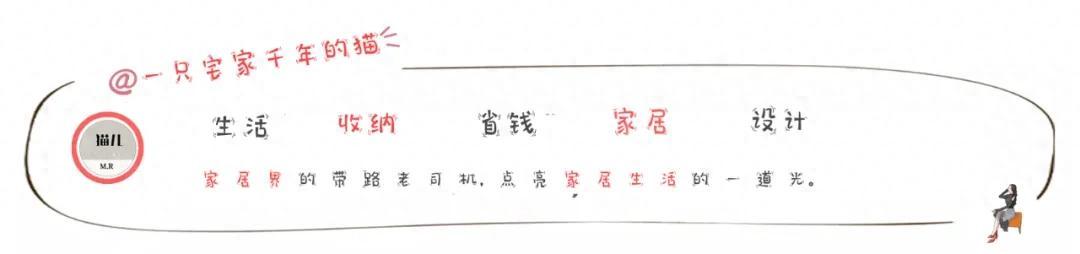 @一只宅家千年的猫
生活 收纳 省钱 家居 设计
猫儿
M.R
家居界的带路老司机,点亮家居生活的一道光。